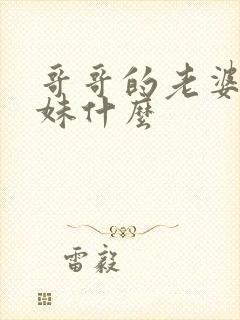 哥哥的老婆
妹什麼
雷毅